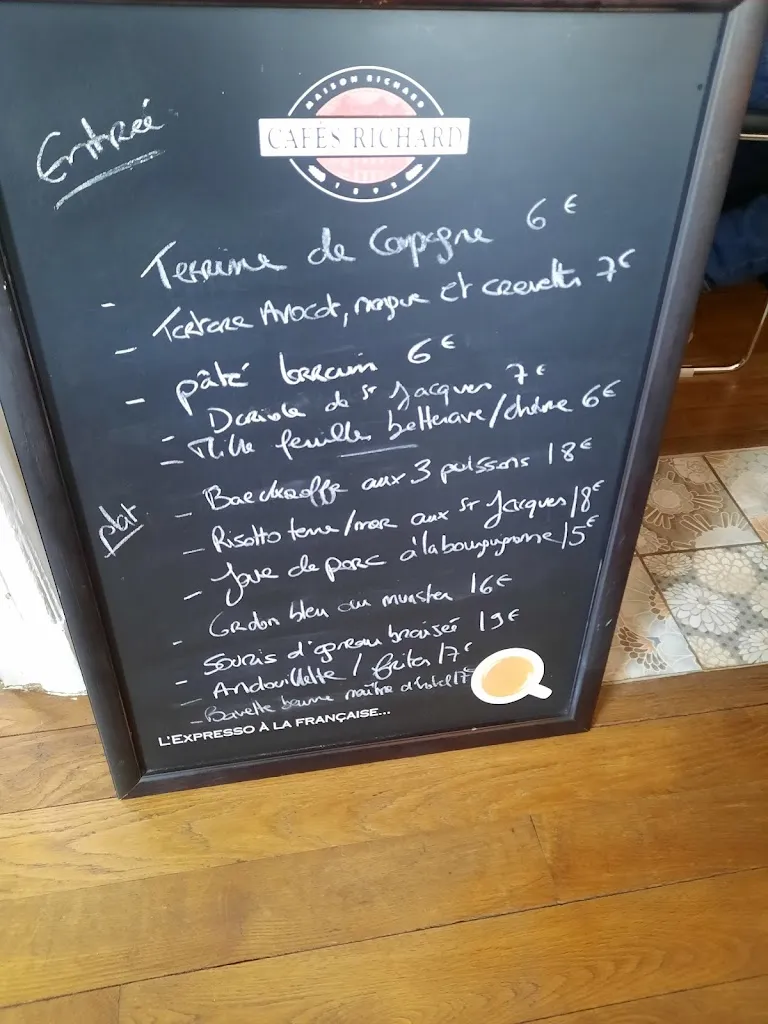 MAISON RICHARD
CAFÉS RICHARD
1892
Entrée
- Terrine de Campagne 6€
- Tartare Avocat, mangue et crevettes 7€
- pâté lorrain 6€
- Dariole de St Jacques 7€
- Mille feuilles betterave/chèvre 6€
plat
- Baeckeoffe aux 3 poissons 18€
- Risotto terre/mer aux St Jacques 18€
- Joue de porc à la bourguignonne 15€
- Cordon bleu au munster 16€
- Souris d'agneau braisée 19€
- Andouillette / frites 17€
- Bavette beurre maître d'hôtel 17€
L'EXPRESSO À LA FRANÇAISE...